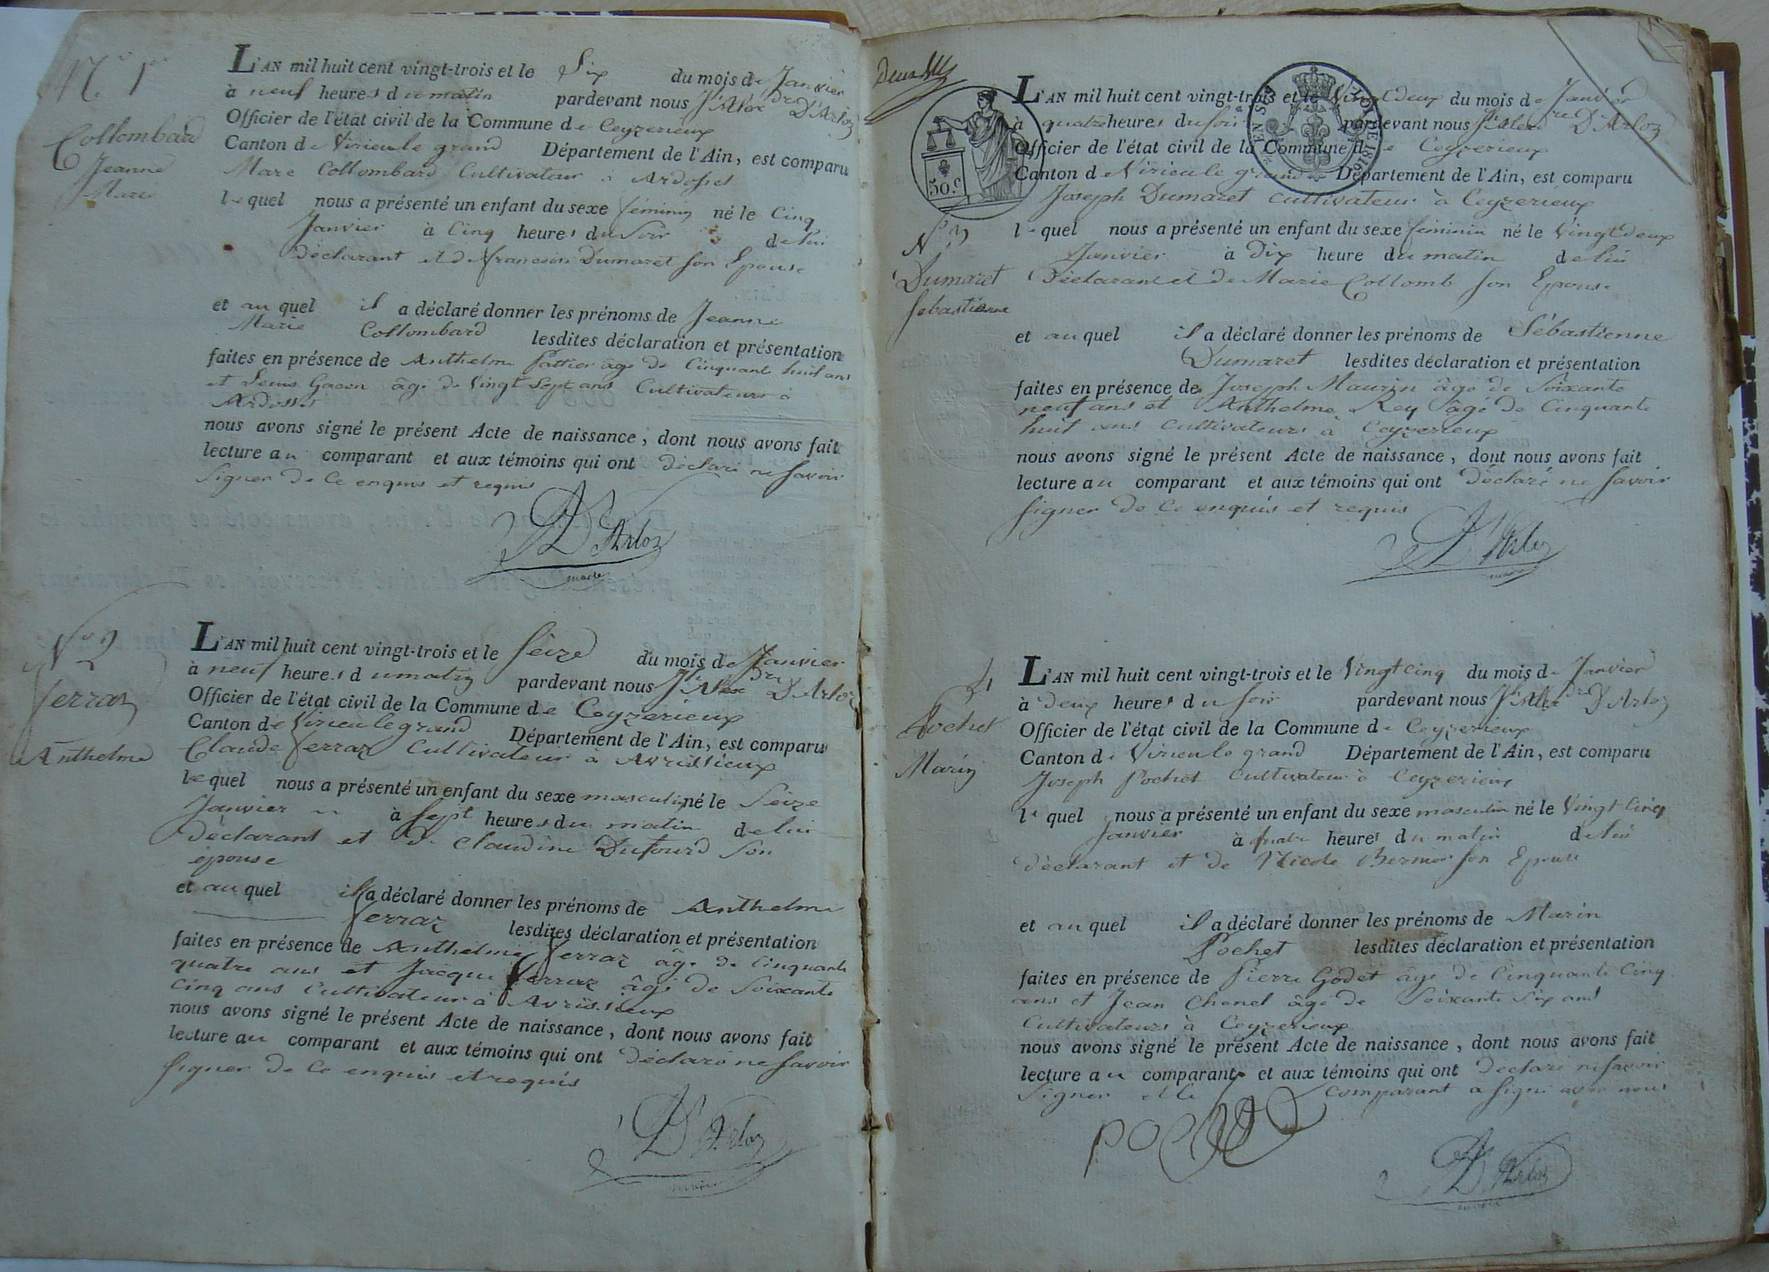 N.o 1er
Collombard
Jeanne
Marie
L'AN mil huit cent vingt-trois et le Six du mois de Janvier
à neuf heures du matin pardevant nous D'Arloz
Officier de l'état civil de la Commune de Ceyzerieux
Canton de Virieu le grand Département de l'Ain, est comparu
Marc Collombard Cultivateur à Ardosset
lequel nous a présenté un enfant du sexe féminin né le Cinq
Janvier à Cinq heures du Soir de lui
déclarant et de Francoise Dumaret son Epouse
et au quel il a déclaré donner les prénoms de Jeanne
Marie Collombard lesdites déclaration et présentation
faites en présence de Anthelme âgé de Cinquante huit ans
et Louis Gacon âgé de Vingt Sept ans Cultivateurs à
Ardosset
nous avons signé le présent Acte de naissance, dont nous avons fait
lecture au comparant et aux témoins qui ont déclaré ne savoir
Signer de ce enquis et requis
D'Arloz
maire
N.o 2
Ferraz
Anthelme
L'AN mil huit cent vingt-trois et le Seize du mois de Janvier
à neuf heures du matin pardevant nous D'Arloz
Officier de l'état civil de la Commune de Ceyzerieux
Canton de Virieu le grand Département de l'Ain, est comparu
Claude Ferraz Cultivateur à Avrissieux
lequel nous a présenté un enfant du sexe masculin né le Seize
Janvier à Sept heures du matin de lui
déclarant et de Claudine Dufourd Son
épouse
et au quel il a déclaré donner les prénoms de Anthelme
Ferraz lesdites déclaration et présentation
faites en présence de Anthelme Ferraz âgé de Cinquante
quatre ans et Jacque Ferraz âgé de Soixante
cinq ans Cultivateur à Avrissieux
nous avons signé le présent Acte de naissance, dont nous avons fait
lecture au comparant et aux témoins qui ont déclaré ne savoir
Signer de ce enquis et requis
D'Arloz
maire
Deux
50.c
N.o 3
Dumaret
Sebastienne
L'AN mil huit cent vingt-trois et le Vingt deux du mois de Janvier
à quatre heures du soir pardevant nous D'Arloz
Officier de l'état civil de la Commune de Ceyzerieux
Canton de Virieu le grand Département de l'Ain, est comparu
Joseph Dumaret cultivateur à Ceyzerieux
lequel nous a présenté un enfant du sexe féminin né le Vingt deux
Janvier à Dix heure du matin de lui
Déclarant et de Marie Collomb son Epouse
et au quel il a déclaré donner les prénoms de Sébastienne
Dumaret lesdites déclaration et présentation
faites en présence de Joseph Maurin âgé de Soixante
neuf ans et Anthelme Rey âgé de Cinquante
huit ans cultivateurs à Ceyzerieux
nous avons signé le présent Acte de naissance, dont nous avons fait
lecture au comparant et aux témoins qui ont déclaré ne savoir
signer de ce enquis et requis
D'Arloz
maire
4
Pochet
Marin
L'AN mil huit cent vingt-trois et le Vingt cinq du mois de Janvier
à deux heures du soir pardevant nous D'Arloz
Officier de l'état civil de la Commune de Ceyzerieux
Canton de Virieu le grand Département de l'Ain, est comparu
Joseph Pochet Cultivateur à Ceyzerieux
lequel nous a présenté un enfant du sexe masculin né le Vingt Cinq
Janvier à quatre heures du matin de lui
déclarant et de Nicole son Epouse
et au quel il a déclaré donner les prénoms de Marin
Pochet lesdites déclaration et présentation
faites en présence de Pierre Godet âgé de Cinquante Cinq
ans et Jean Chenel âgé de Soixante Six ans
Cultivateurs à Ceyzerieux
nous avons signé le présent Acte de naissance, dont nous avons fait
lecture au comparant et aux témoins qui ont déclaré ne savoir
Signer et le comparant a signé avec nous
pochet
D'Arloz
maire